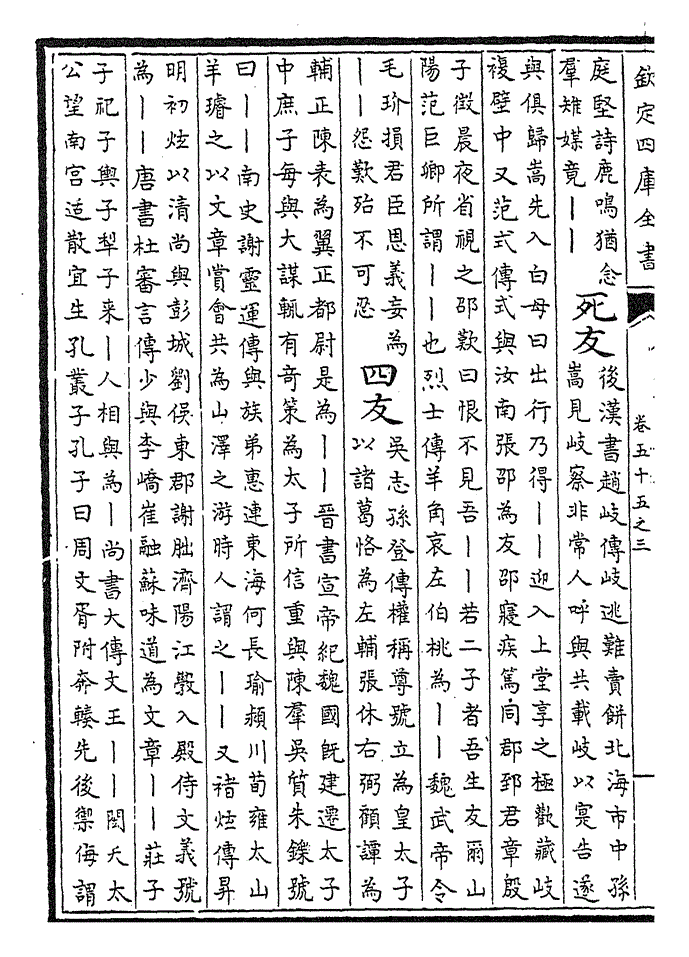 欽定四庫全書
卷五十五之三
庭堅詩鹿鳴猶念
羣雉媒竟丨丨
死友
後漢書趙岐傳岐逃難賣餅北海市中孫
嵩見岐察非常人呼與共載岐以寔告遂
與俱歸嵩先入白母曰出行乃得丨丨迎入上堂享之極歡藏岐
複壁中又范式傳式與汝南張邵為友邵寢疾篤同郡郅君章殷
子徵晨夜省視之邵歎曰恨不見吾丨丨若二子者吾生友爾山
陽范巨卿所謂丨丨也烈士傳羊角哀左伯桃為丨丨魏武帝令
毛玠損君臣恩義妄為
丨丨怨歎殆不可忍
四友
吳志孫登傳權稱尊號立為皇太子
以諸葛恪為左輔張休右弼顧譚為
輔正陳表為翼正都尉是為丨丨晉書宣帝紀魏國既建遷太子
中庶子每與大謀輒有奇策為太子所信重與陳羣吳質朱鑠號
曰丨丨南史謝靈運傳與族弟惠連東海何長瑜潁川荀雍太山
羊璿之以文章賞會共為山澤之游時人謂之丨丨又禇炫傳昇
明初炫以清尚與彭城劉俁東郡謝朏濟陽江斅入殿侍文義號
為丨丨唐書杜審言傳少與李嶠崔融蘇味道為文章丨丨莊子
子祀子輿子犁子來丨人相與為丨尚書大傳文王丨丨閎夭太
公望南宮适散宜生孔叢子孔子曰周文胥附奔輳先後禦侮謂